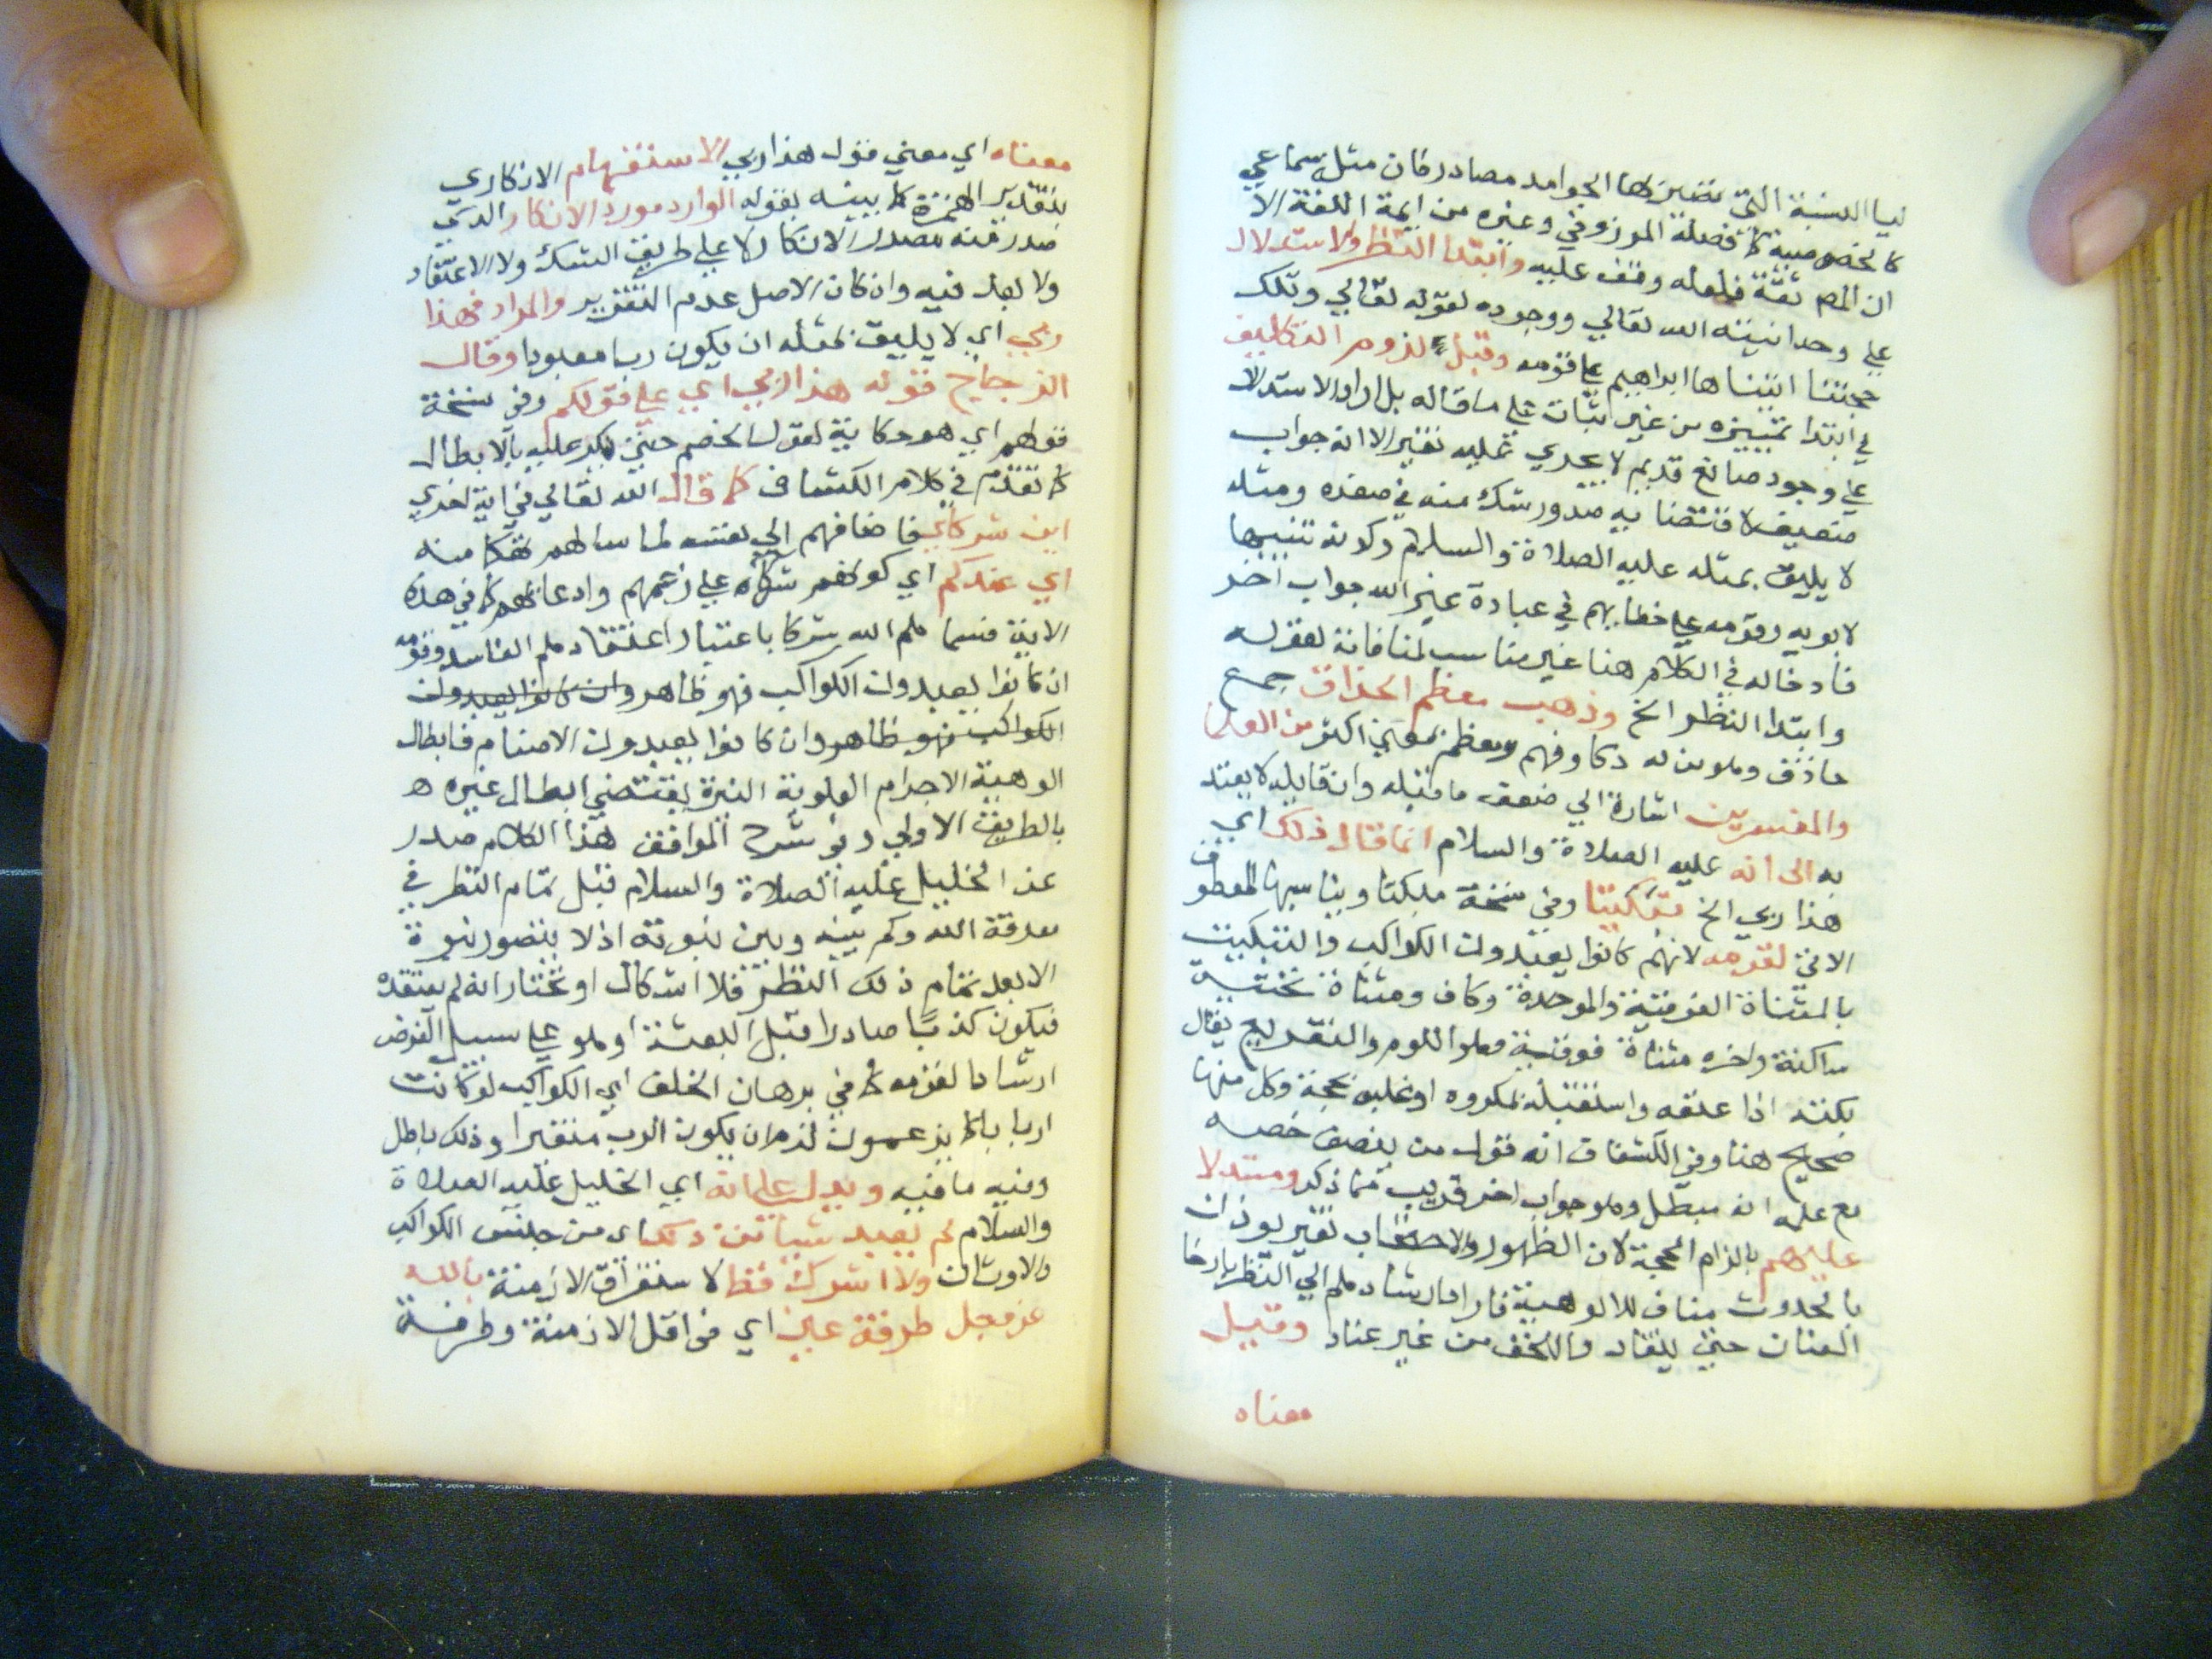 نيا النسبة التي تصير بها الجوامد مصادر فان مثل سماعي
كالخصوصية كما فصله المرزوقي وغيره من ايمة اللغة الا
ان المص ثقة فلعله وقف عليه وابتدا النظر والاستدلال
على وحدانيته الله تعالي ووجوده لقوله تعالي وتلك
حجتنا اتيناها ابراهيم على قومه وقبل لزوم التكاليف
في ابتدا تمييزه من غير اثبات على ما قاله بل اراد الاستدلال
على وجود صانع قديم لا يجري عليه تغير الا انه جواب
ضعيف لاقتضايه صدور شك منه في صغره ومثله
لا يليق بمثله عليه الصلاة والسلام وكونه تنبيها
لابويه وقومه على خطايهم في عبادة غير الله جواب اخر
فادخاله في الكلام هنا غير مناسب لمنافاته لقوله
وابتدا النظر الخ وذهب معظم الحذاق جمع
حاذق وهو من له ذكا وفهم ومعظم بمعني اكثر من العلما
والمفسرين اشارة الي ضعف ما قبله وان قايله لا يعتد
به الى انه عليه الصلاة والسلام انما قال ذلك اي
هذا ربي الخ تبكيتا وفي نسخة مبكتا ويناسبها المعطوف
الاتي لقومه لانهم كانوا يعبدون الكواكب والتبكيت
بالمثناة الفوقية والموحدة وكاف ومثناة تحتية
ساكنة واخره مثناة فوقية وهو اللوم والتقريع يقال
بكته اذا عنفه واستقبله بمكروه او غلبه بحجة وكل منها
صحيح هنا وفي الكشاف انه قول من ينصف خصمه
مع علمه انه مبطل وهو جواب اخر قريب مما ذكر ومستدلا
عليهم بالزام الحجة لان الظهور والاحتجاب تغير يوذن
بالحدوث مناف للالوهية فاراد ارشادهم الي النظر بارخا
العنان حتى ينقاد والالحق من غير عناد وقيل
معناه
معناه اي معني قوله هذا ربي الاستفهام الانكاري
بتقدير الهمزة كما بينه بقوله الوارد مورد الانكار الذي
صدر منه مصدر الانكار لا على طريق الشك ولا الاعتقاد
ولا بعد فيه وان كان الاصل عدم التقدير والمراد فهذا
ربي اي لا يليق بمثله ان يكون ربا معبودا وقال
الزجاج قوله هذا ربي اي على قولكم وفي نسخة
قولهم اي هو حكاية لقول الخصم حتى يكر عليه بالابطال
كما تقدم في كلام الكشاف كما قال الله تعالي في اية اخري
اين شركاي فاضافهم الي نفسه لما سالهم تهكما منه
اي عندكم اي كونهم شركاء على زعمهم وادعايهم كما في هذه
الاية فسماهم الله شركا باعتبار اعتقادهم الفاسد وقومه
ان كانوا يعبدون الكواكب فهو ظاهر وان كانوا يعبدون
الكواكب فهو ظاهر وان كانوا يعبدون الاصنام فابطال
الوهية الاجرام العلوية النيرة يقتضي ابطال غيره ه
بالطريق الاولي وفي شرح المواقف هذا الكلام صدر
عن الخليل عليه الصلاة والسلام قبل تمام النظر في
معرفة الله وكم بينه وبين نبوته اذ لا يتصور نبوة
الا بعد تمام ذلك النظر فلا اشكال او نختار انه لم يعتقده
فيكون كذبا صادرا قبل البعثة او هو على سبيل الفرض
ارشادا لقومه كما في برهان الخلف اي الكواكب لو كانت
اربابا كما يزعمون لزم ان يكون الرب متغيرا وذلك باطل
وفيه ما فيه ويدل على انه اي الخليل عليه الصلاة
والسلام لم يعبد شيئا من ذلك اي من جنس الكواكب
والاوثان ولا اشرك قط لاستغراق الازمنة بالله
عز وجل طرفة عين اي في اقل الازمنة وطرفة